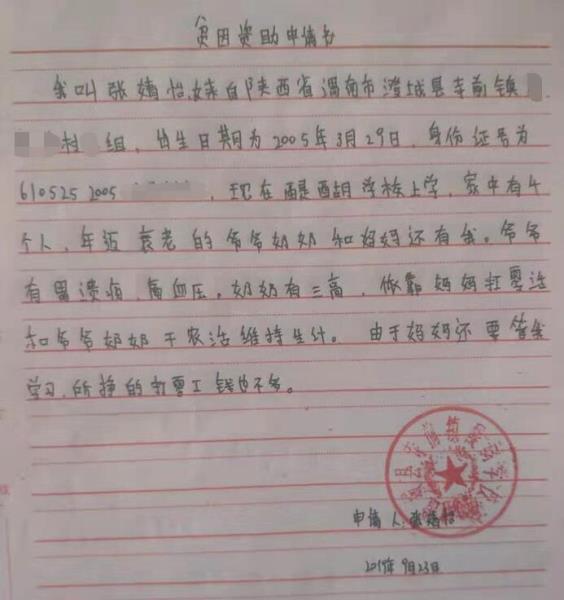 贫困资助申请书
我叫张婧怡,来自陕西省渭南市澄城县寺前镇
村 组,出生日期为2005年3月29日,身份证号为
610525 2005 ,现在 西 学校上学,家中有4
个人,年迈衰老的爷爷奶奶和妈妈还有我。爷爷
有胃溃疡,高血压,奶奶有三高,依靠妈妈打零活
和爷爷奶奶干农活维持生计。由于妈妈还要管我
学习,所挣的打零工钱也不多。
申请人:张婧怡
2019年9月23日